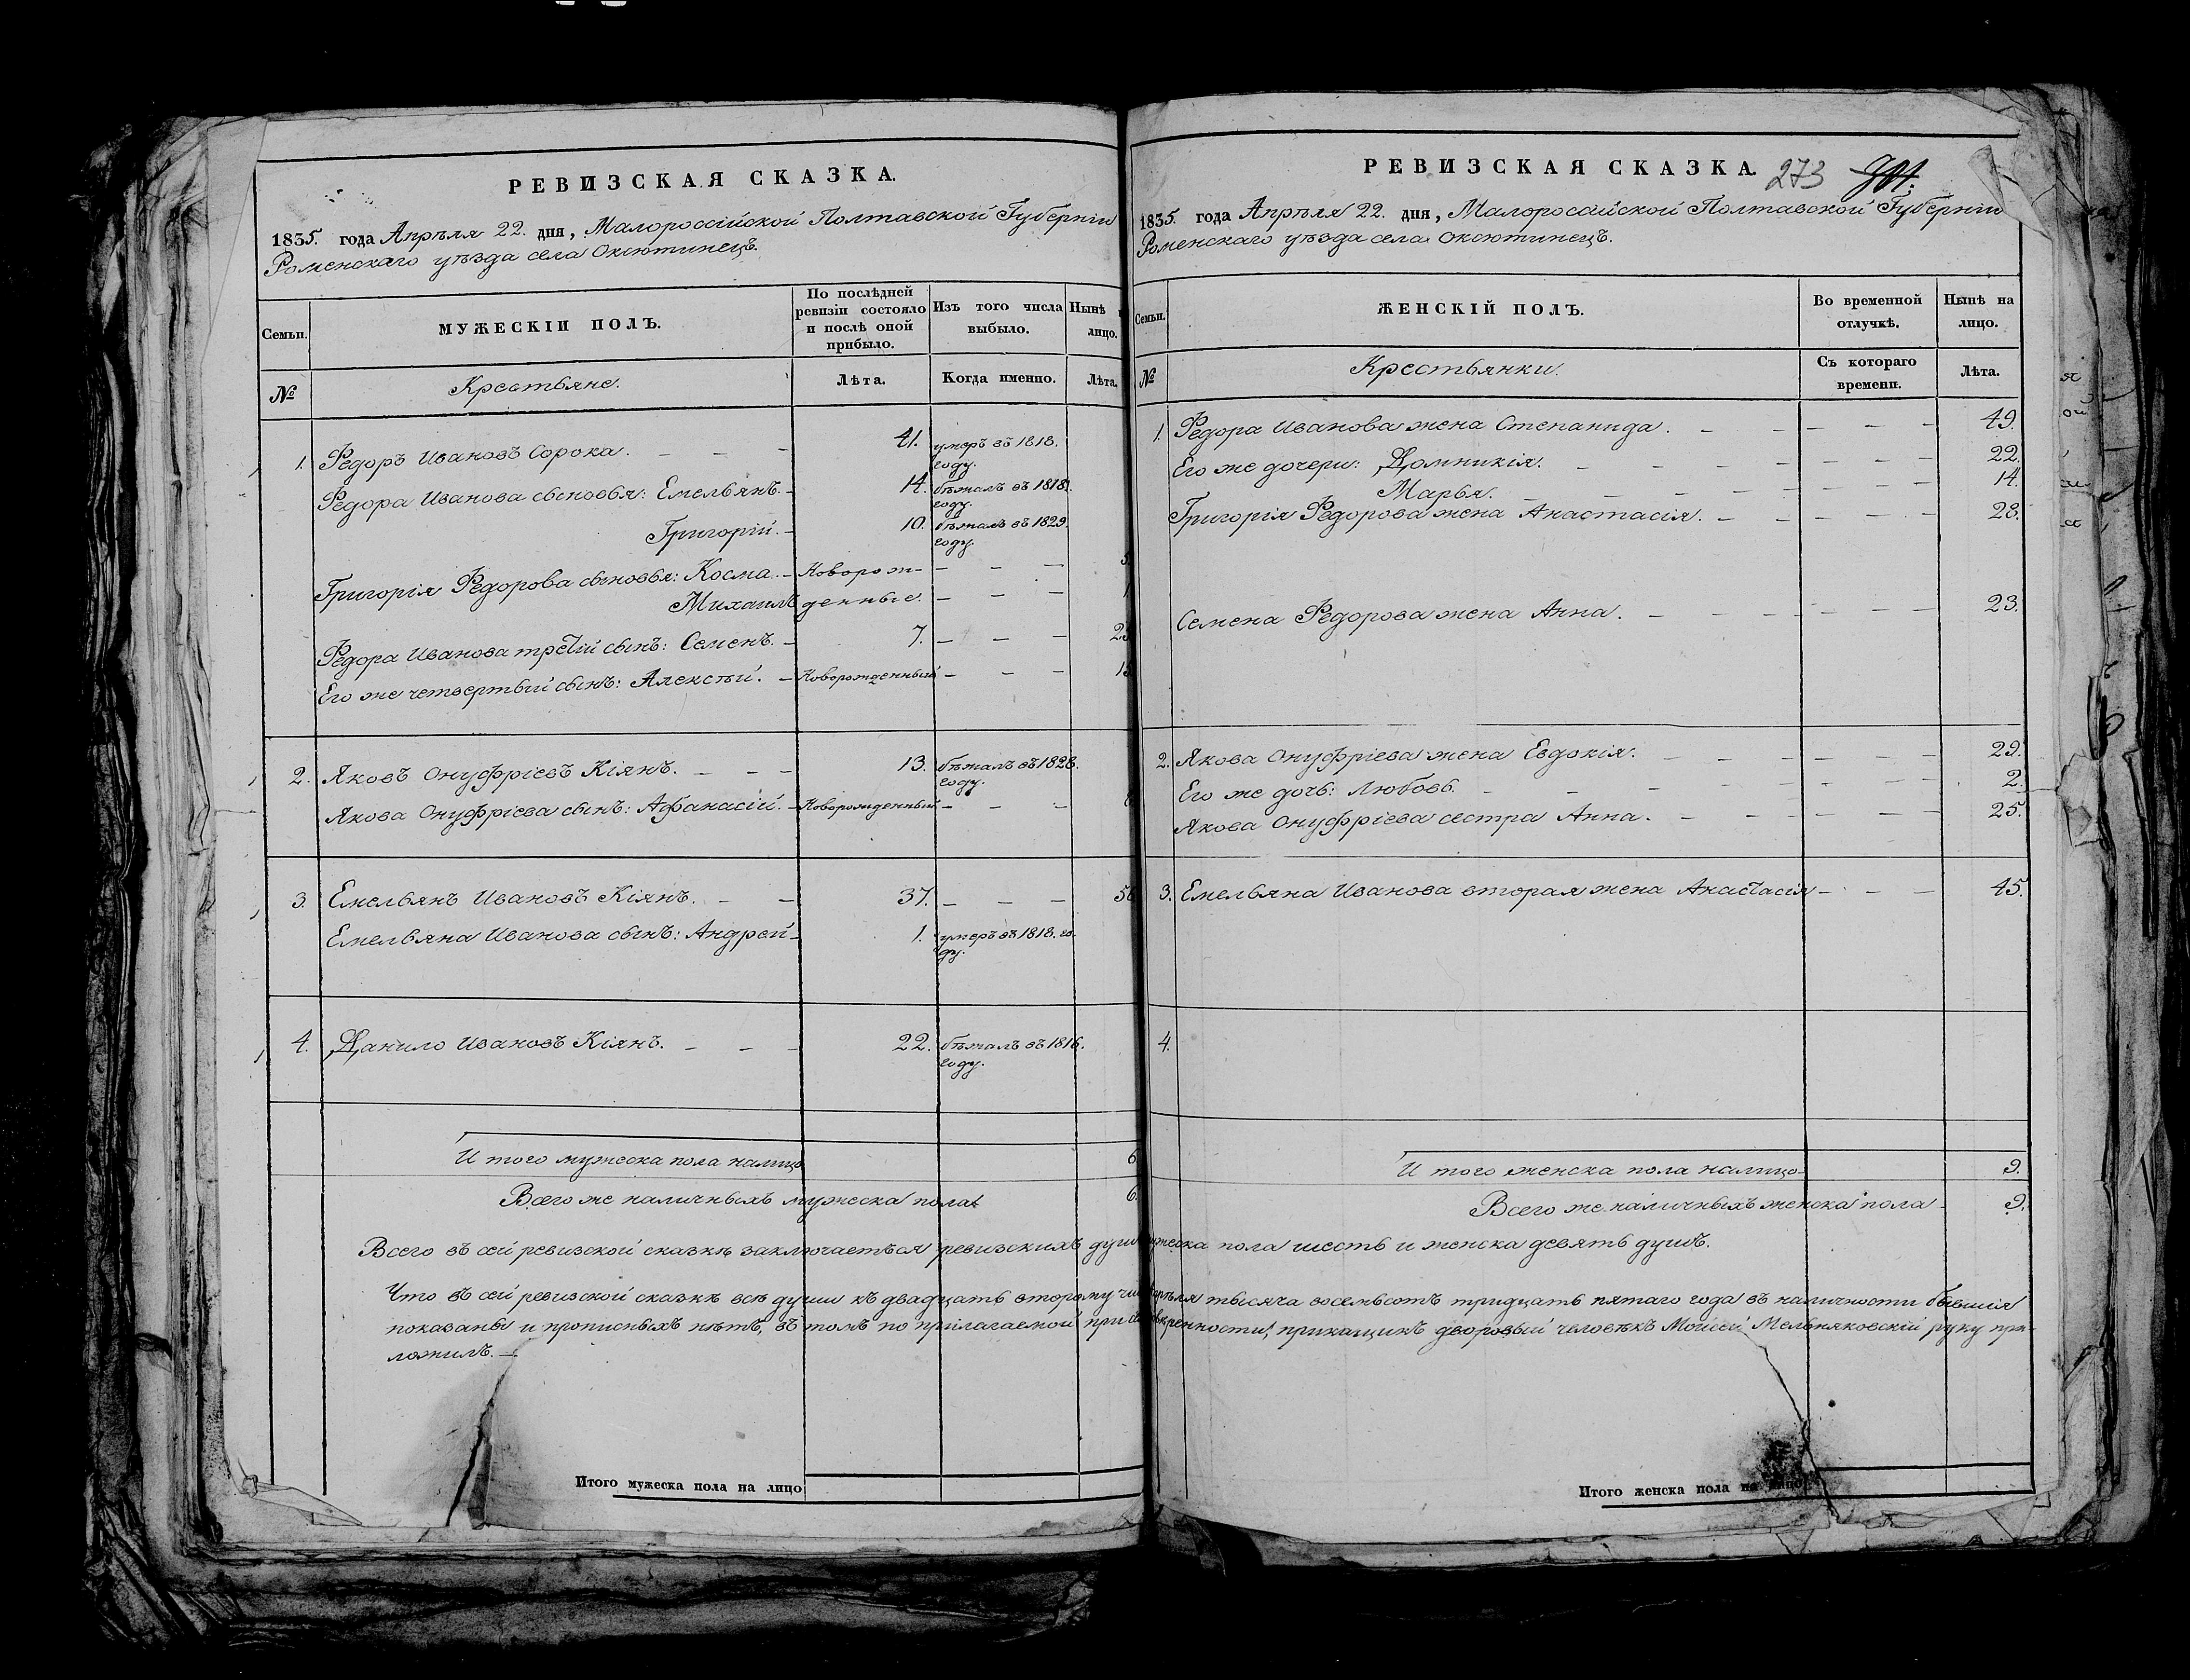 РЕВИЗСКАЯ СКАЗКА.
1835. года Апрѣля 22. дня, Малороссійской Полтавской Губерніи
Роменскаго уѣзда села Оксютинецъ.
Семьи.
МУЖЕСКІЙ ПОЛЪ.
По послѣдней
ревизіи состояло
и послѣ оной
прибыло.
Изъ того числа
выбыло.
Нынѣ
лицо.
№
Крестьяне.
Лѣта.
Когда именно.
Лѣта.
1. Ѳедоръ Ивановъ Сорока. 41. умеръ въ 1818.
году.
Ѳедора Иванова сыновья: Емельянъ. 14. бѣжалъ въ 1818.
году.
Григорій. 10. бѣжалъ въ 1829.
году.
Григорія Ѳедорова сыновья: Косма.Новорож-
Михаилъ денные. 1
Ѳедора Иванова третій сынъ: Семенъ. 7.
Его же четвертый сынъ: Алексѣй. Новорожденный
2. Яковъ Онуфріевъ Кіянъ. 13. бѣжалъ въ 1828.
году.
Якова Онуфріева сынъ: Афанасій. Новорожденный
3. Емельянъ Ивановъ Кіянъ. 37. 56
Емельяна Иванова сынъ: Андрей 1. умеръ въ 1818. го-
ду.
4. Данило Ивановъ Кіянъ. 22. бѣжалъ въ 1816.
году.
И того мужеска пола налицо 6
Всего же наличныхъ мужеска пола 6.
РЕВИЗСКАЯ СКАЗКА. 273
1835. года Апрѣля 22. дня, Малороссійской Полтавской Губерніи
Роменскаго уѣзда села Оксютинецъ.
Семьи.
ЖЕНСКІЙ ПОЛЪ.
Во временной
отлучкѣ.
Нынѣ на
лицо.
№
Крестьянки.
Съ котораго
времени.
Лѣта.
1. Ѳедора Иванова жена Степанида. 49.
Его же дочери: Домникія. 22.
Марья. 14.
Григорія Ѳедорова жена Анастасія. 28.
Семена Ѳедорова жена Анна. 23.
2. Якова Онуфріева жена Евдокія. 29.
Его же дочь: Любовь. 2.
Якова Онуфріева сестра Анна. 25.
3. Емельяна Иванова вторая жена Анастасія 45.
4.
И того женска пола налицо 9.
Всего же наличныхъ женска пола 9.
Всего въ сей ревизской сказкѣ заключается ревизскихъ душъ мужеска пола шесть и женска девять душъ.
Что въ сей ревизской сказкѣ всѣ души къ двадцать второму Апрѣля тысяча восемьсотъ тридцать пятаго года въ наличности бывшія
показаны и прописныхъ нѣтъ, въ томъ по прилагаемой при прикащикъ дворовый человѣкъ Моисей Мельняковскій руку при-
ложилъ.
Итого мужеска пола на лицо
Итого женска пола на лицо